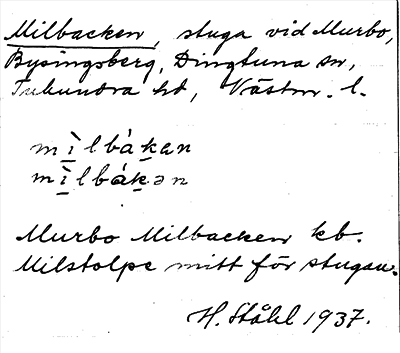 Milbacken, stuga vid Murbo,
Bysingsberg, Dingtuna sn,
Tuhundra hd, Västm. l.
mìlbákan
mìlbákən
Murbo Milbacken kb.
Milstolpe mitt för stugan.
H. Ståhl 1937.